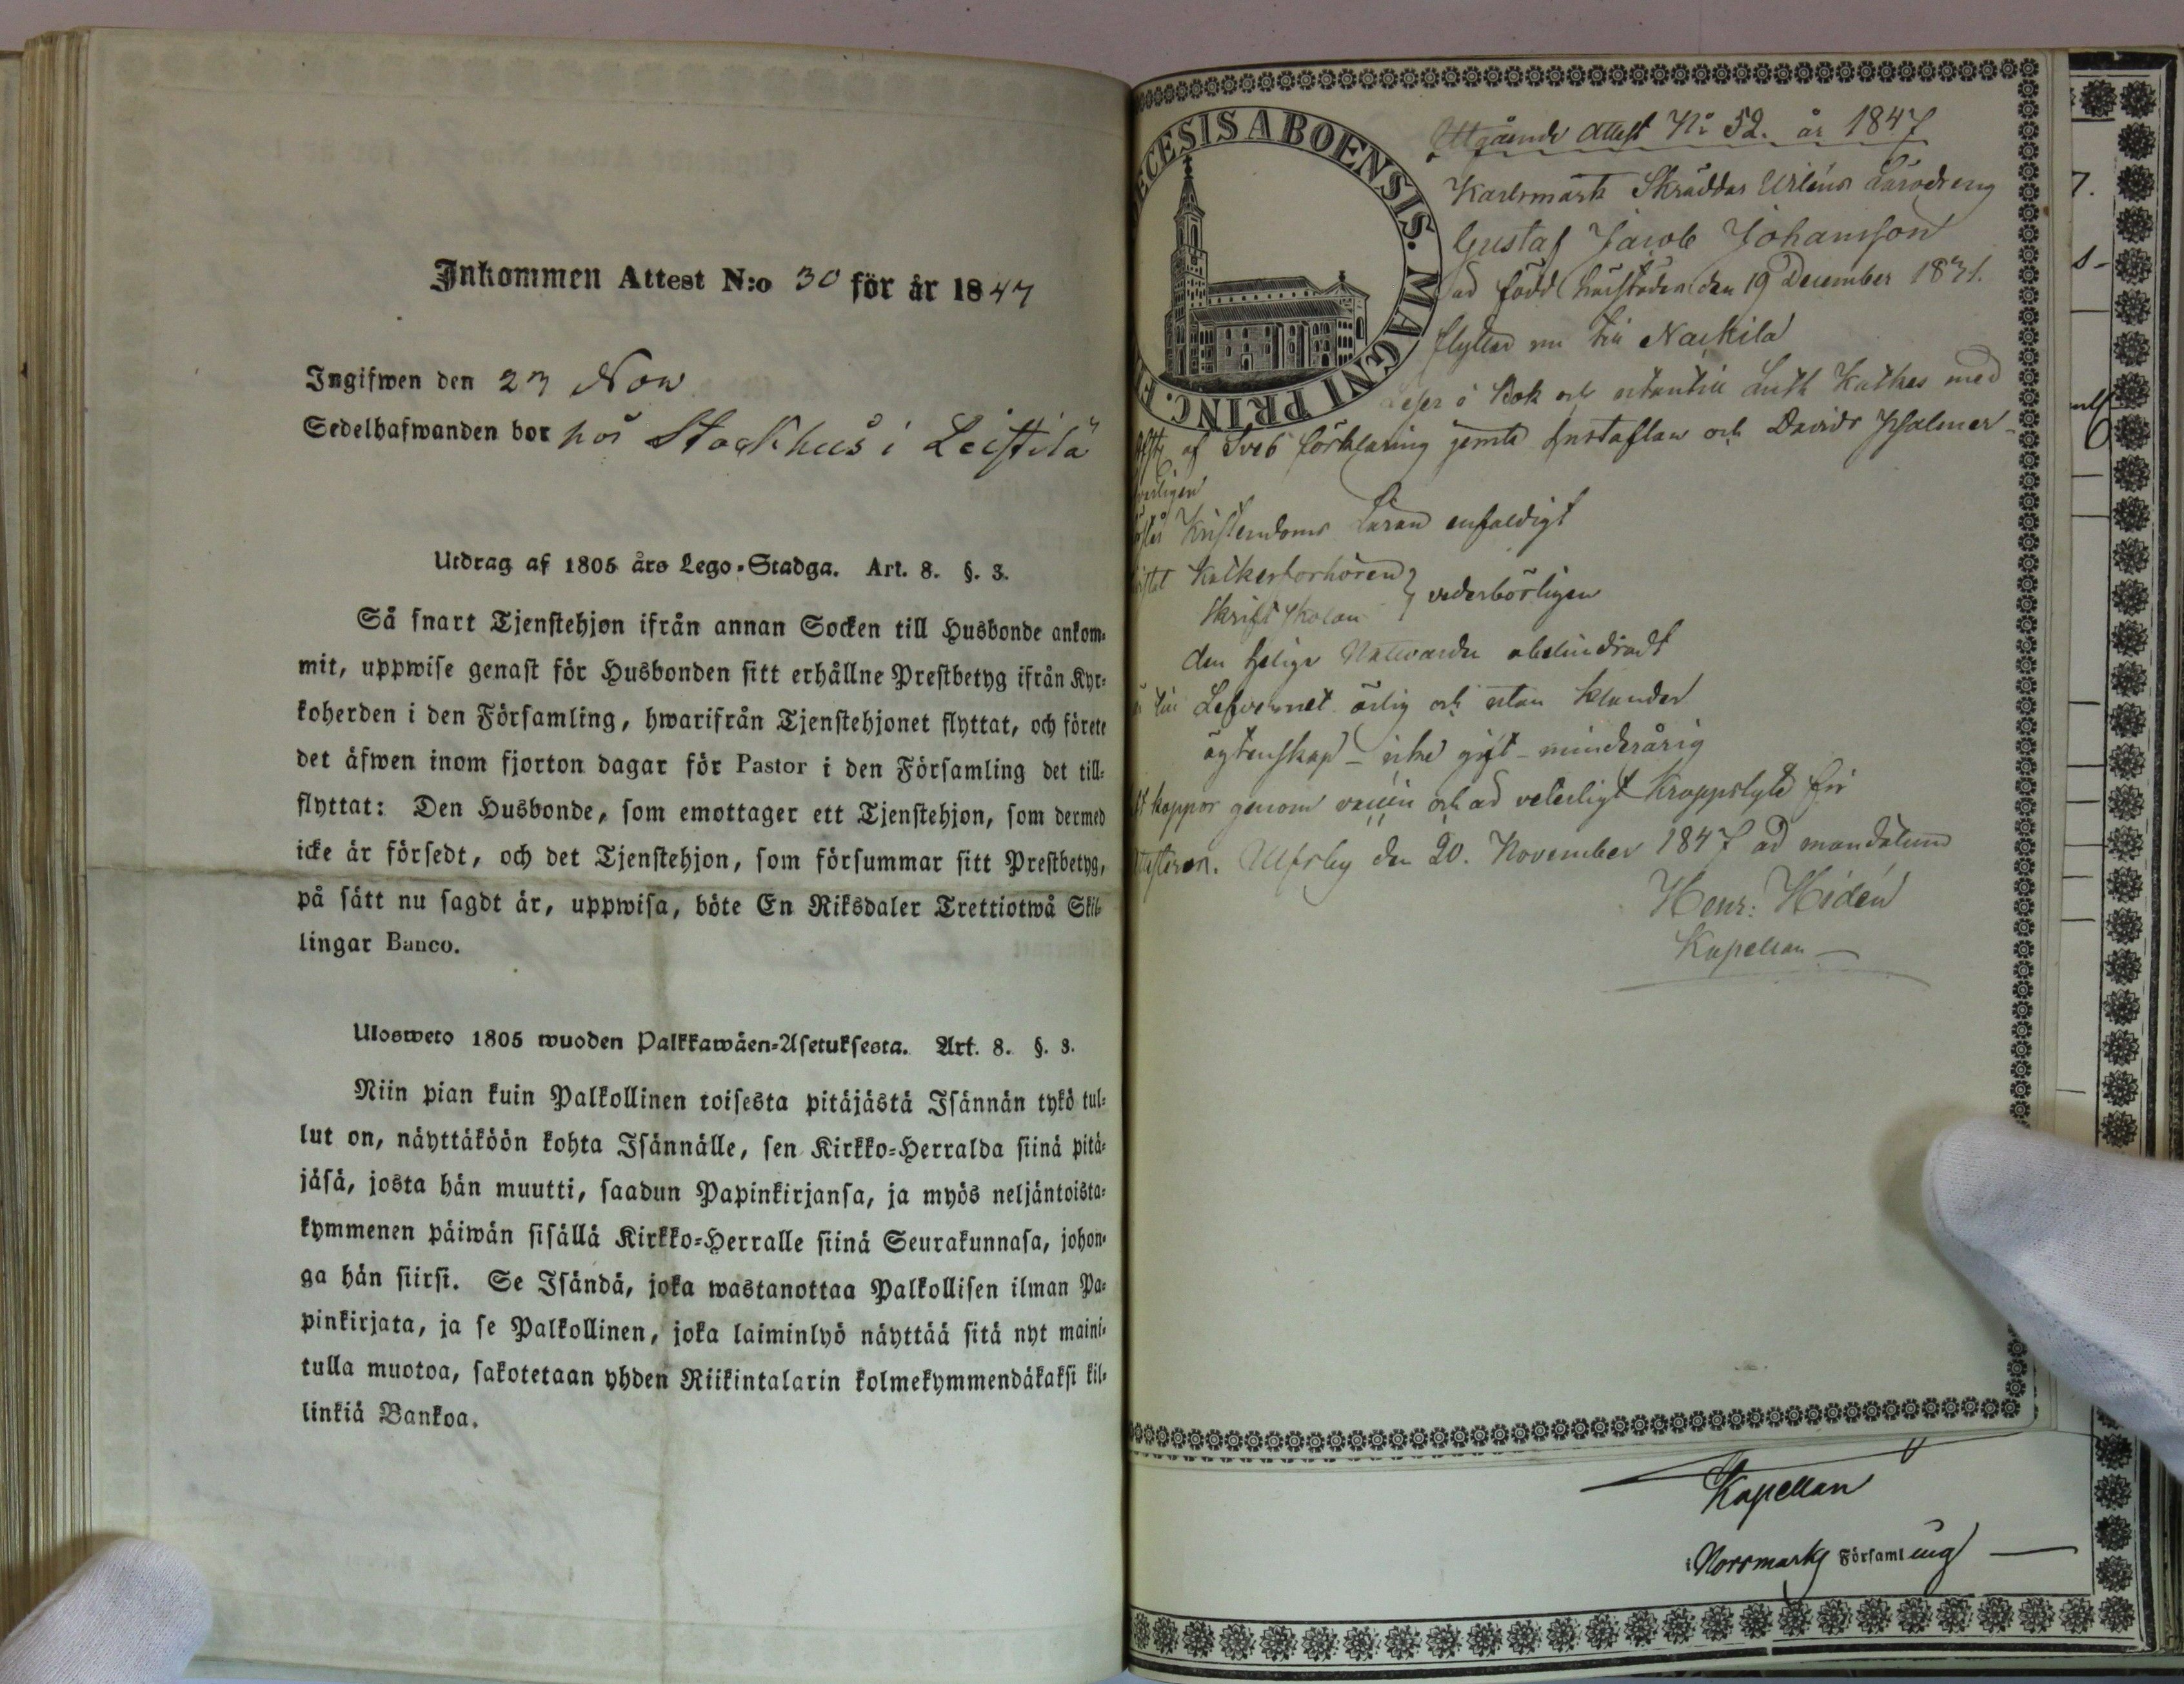 Inkommen Attest N:o 30 för år 1847
Ingifwen den 23 Nov
Sedelhafwanden bor hos Stackhus i Leistilä
Utdrag af 1805 års Lego-Stadga. Art. 8. §. 3.
Så snart Tjenstehjon ifrån annan Socken till Husbonde ankom-
mit, uppwise genast för Husbonden sitt erhållne Prestbetyg ifrån Kyr-
koherden i den Församling, hwarifrån Tjenstehjonet flyttat, och förete
det äfwen inom fjorton dagar för Pastor i den Församling det till-
flyttat: Den Husbonde, som emottager ett Tjenstehjon, som dermed
icke är försedt, och det Tjenstehjon, som försummar sitt Prestbetyg,
på sätt nu sagdt är, uppwisa, böte En Riksdaler Trettiotwå Skil-
lingar Banco.
Ulosweto 1805 wuoden Palkkawäen-Asetuksesta. Art. 8. §. 3.
Niin pian kuin Palkollinen toisesta pitäjästä Isännän tykö tul-
lut on, näyttäköön kohta Isännälle, sen Kirkko-Herralda siinä pitä-
jäsä, josta hän muutti, saadun Papinkirjansa, ja myös neljäntoista-
kymmenen päiwän sisällä Kirkko-Herralle siinä Seurakunnasa, johon-
ga hän siirsi. Se Isändä, joka wastanottaa Palkollisen ilman Pa-
pinkirjata, ja se Palkollinen, joka laiminlyö näyttää sitä nyt maini-
tulla muotoa, sakotetaan yhden Riikintalarin kolmekymmendäkaksi kil-
linkiä Bankoa.
ECESIS ABOENSIS. MAGNI PRINC.
Utgående Attest No 52. år 1847
Karlsmark Skräddar Urléns Lärodreng
Gustaf Jacob Johansson
född härstädes den 19 December 1831.
flyttar nu till Nackila
Läser i Bok och utantill Luth Kathes med
af Sveb förklaring jemte Hustaflan och Davids Psalmer
Kristendoms Läran enfaldigt
Katkesförhören } vederbörligen
Skriftskolan
den helige Nattvarden obehindradt
Lefvernet ärlig och utan klander
ägtenskap - icke gift - minderårig
koppor genom vaccin och ad veterligt Kroppslyte fri
Ulfsby den 20. November 1847 ad mandatum
Henr: Hidén
Kapellan
Kapellan
i Norrmarks Församling